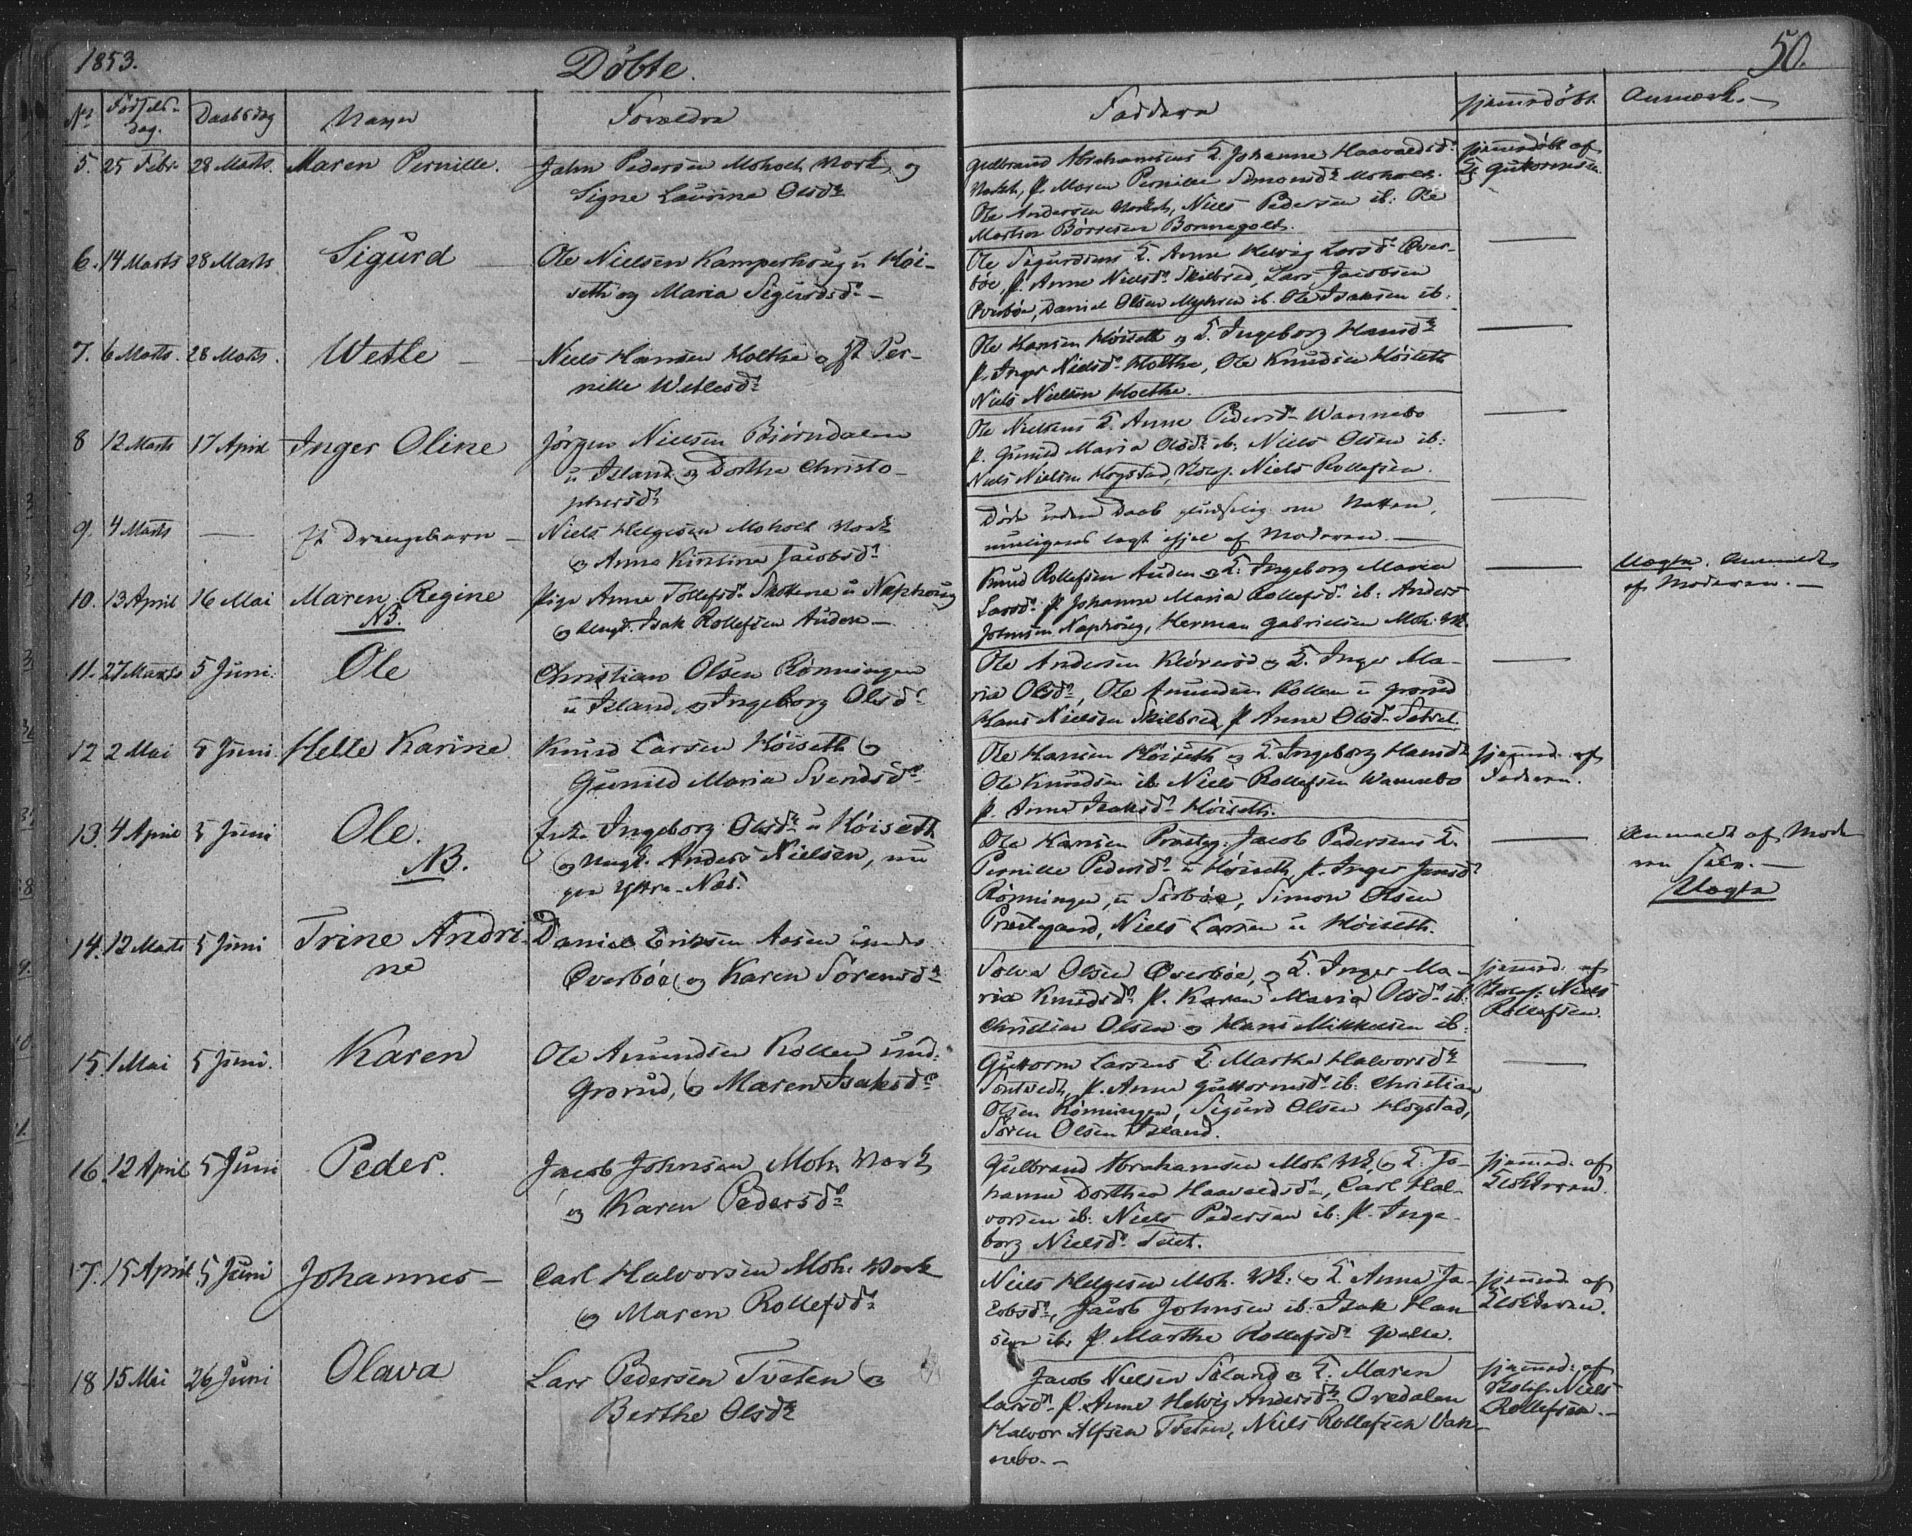 1853.
Döbte.
50.
No
Födsels-
dag.
Daabsdag
Navn
Forældre
Faddere
hjemmedöbt.
Anmærk.
5. 25 Febr. 28 Marts. Maren Pernille.
John Pedersen Moholt Værk, og
Signe Laurine Olsdr
Gulbrand Abrahamsens K. Johanne Haavaldsd.
Værk, P. Maren Pernille Simonsdr Moholt.
Ole Andersen Værk, Niels Pedersen ib: Ole
Martin Börresen Bonnegolt.
hjemmedöbt af
G. Guttormsen
6. 14 Marts 28 Marts. Sigurd
Ole Nielsen Kamperhoug u Höi-
seth og Maria Sigurdsdr
Ole Sigurdsens K. Anne Helvig Larsd. Over-
böe, P. Anne Nielsd. Skilbred, Lars Jacobsen
Overböe, Daniel Olsen Myhren ib. Ole Isaksen ib.
7. 6 Marts. 28 Marts. Wetle
Niels Hansen Holthe og H. Per-
nille Wetlesdr
Ole Hansen Höiseth og K. Ingeborg Hansdr
P. Inger Nielsd. Holthe, Ole Knudsen Höiseth
Niels Nielsen Holthe.
8 12 Marts 17 April Inger Oline
Jörgen Nielsen Björndalen
u Island og Dorthe Christo-
phersdr
Ole Nielsens K. Anne Pedersd. Wannebo
P. Gunild Maria Olsdr ib. Niels Olsen ib:
Niels Nielsen Hogstad, Kclf. Niels Rollefsen.
9. 4 Marts
Et Drengebarn
Niels Helgesen Moholt Værk
og Anne Kirstine Jacobsdr
Döde uden Daab pludselig om Natten,
muligens lagt ihjel af Moderen.
10. 13 April 16 Mai Maren Regine
NB.
Pige Anne Tollefsd. Skottene u Naphoug
og Ungk. Isak Rollefsen Auden
Knud Rollefsen Auden og K. Ingeborg Maria
Larsd. P. Johanne Maria Rollefsd. ib: Anders
Johnsen Naphoug, Herman Gabrielsen Moh. Vk.
Uægte. Anmeldt
af Moderen.
11. 27 Marts 5 Juni. Ole
Christian Olsen Rönningen
u Island, og Ingeborg Olsdr
Ole Andersen Klöverød og K. Inger Ma-
ria Olsdr, Ole Amundsen Rollen u Grorud
Hans Nielsen Skilbred P. Anne Olsd.
12 2 Mai 5 Juni. Helle Karine
Knud Larsen Höiseth og
Gunild Maria Svendsdr
Ole Hansen Höiseth og K. Ingeborg Hansdr
Ole Knudsen ib. Niels Rollefsen Wannebo
P. Anne Isaksd. Höiseth.
hjemmed. af
Faderen.
13. 4 April 5 Juni Ole.
NB.
Enke Ingeborg Olsdr u Höiseth
og Ungk. Anders Nielsen, nu
paa Yttre-Næs.
Ole Hansen Præsteg. Jacob Pedersens K.
Pernille Pedersdr u Höiseth, P. Inger Jensd.
Rönningen, u Sörböe, Simon Olsen
Præstegaard, Niels Larsen u Höiseth.
Anmeldt af Mode
ren selv.
Uægte
14. 12 Marts 5 Juni Trine Andri-
ne
Daniel Eriksen Aasen under
Overböe og Karen Sörensdr
Solve Olsen Overböe, og K. Inger Ma-
ria Knudsdr P. Karen Maria Olsdr ib:
Christian Olsen og Hans Mikkelsen ib.
hjemmed. af
Kclf: Niels
Rollefsen.
15. 1 Mai 5 Juni. Karen
Ole Amundsen Rollen und.
Grorud, og Maren Isaksdr
Guttorm Larsens K. Marthe Halvorsdr
Tontvedt, P. Anne Guttormsd. ib. Christian
Olsen Rönningen, Sigurd Olsen Hogstad,
Sören Olsen Island.
16. 12 April 5 Juni Peder.
Jacob Johnsen Moh. Værk
og Karen Pedersdr
Gulbrand Abrahamsen Moh. Vk. og K. Jo-
hanne Dorthea Haavaldsdr, Carl Hal-
vorsen ib: Niels Pedersen ib: P. Inge-
borg Nielsd.
hjemmed. af
Klokkeren.
17. 15 April 5 Juni Johannes
Carl Halvorsen Moh. Værk
og Maren Rollefsdr
Niels Helgesen Moh. Vk. og K. Anne Ja-
cobsdr, Jacob Johnsen ib. Isak Han
sen ib. P. Marthe Rollefsd.
hjemmed. af
Klokkeren.
18 15 Mai 26 Juni Olava
Lars Pedersen Tveten og
Berthe Olsdr
Jacob Nielsen Island og K. Maren
Larsd. P. Anne Helvig Andersdr Oredalen
Halvor Alfsen Tveten, Niels Rollefsen Van-
nebo.
hjemmed. af
Kclf. Niels
Rollefsen.